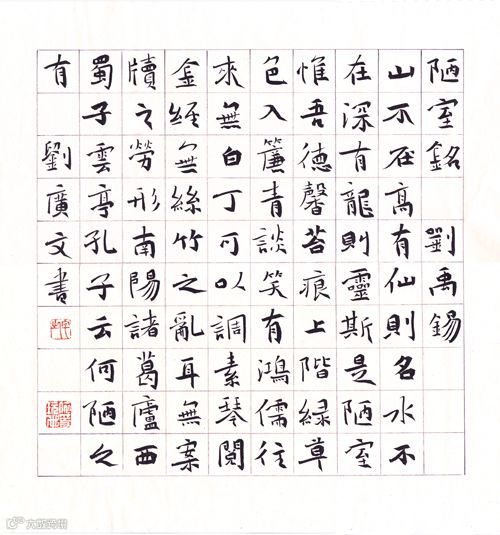 陋室銘 劉禹錫
山不在高有仙則名水不
在深有龍則靈斯是陋室
惟吾德馨苔痕上階緑草
色入簾青談笑有鴻儒往
來無白丁可以調素琴閱
金經無絲竹之亂耳無案
牘之勞形南陽諸葛廬西
蜀子雲亭孔子云何陋之
有 劉廣文書